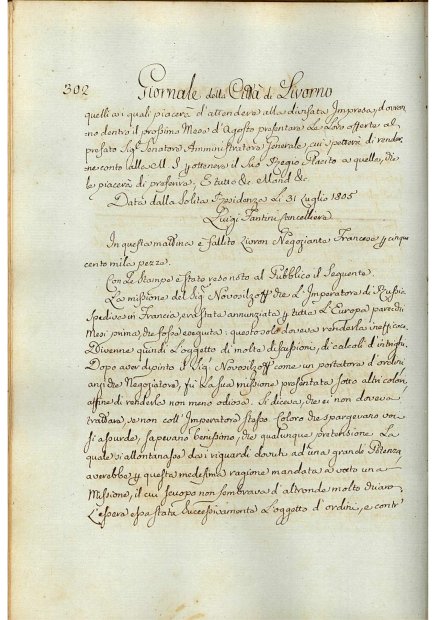 302 Giornale della Città di Livorno
quelli ai quali piacerà d'attendere alla divisata Impresa, dovran
no dentro il prossimo Mese d'Agosto presentare Le Loro offerte al
prefato Sigr. Senatore Amministratore Generale, cui spetterà di render
ne conto alla M. S. p ottener il Suo Regio Placito a quelle, che
le piacerà di preferire, E tutto &c. Mand. &c.
Data dalla Solita Residenza Li 31 Luglio 1805
Luigi Fantini Cancelliere
In questa mattina è fallito Negoziante Francese p cinque
cento mila pezze.
Con Le Stampe è stato reso noto al Pubblico il Seguente.
La missione del Sig. Novosilzoff che L'Imperatore di Russia
Spediva in Francia, era stata annunziata p tutta L'Europa parecchi
Mesi prima, che fosse eseguita: questo solo doveva renderla inefficace.
Divenne quindi L'oggetto di molte discussioni, di calcoli, d'intrighi.
Dopo aver dipinto il Sig. Novosilzoff come un portatore d'ordini
anzi che Negoziatore, fu La sua missione presentata sotto altri colori,
affine di renderla non meno odiosa. Si diceva, che ei non doveva
trattare, se non coll'Imperatore stesso. Coloro che spargevano voci
sì assurde, sapevano benissimo, che qualunque pretensione La
quale si allontanasse dai riguardi dovuti ad una grande Potenza
averebbe p questa medesima ragione mandata a voto una
Missione, il cui scuopo non sembrava d'altronde molto chiaro.
L'essere essa stata Successivamente L'oggetto d'ordini, e contr'